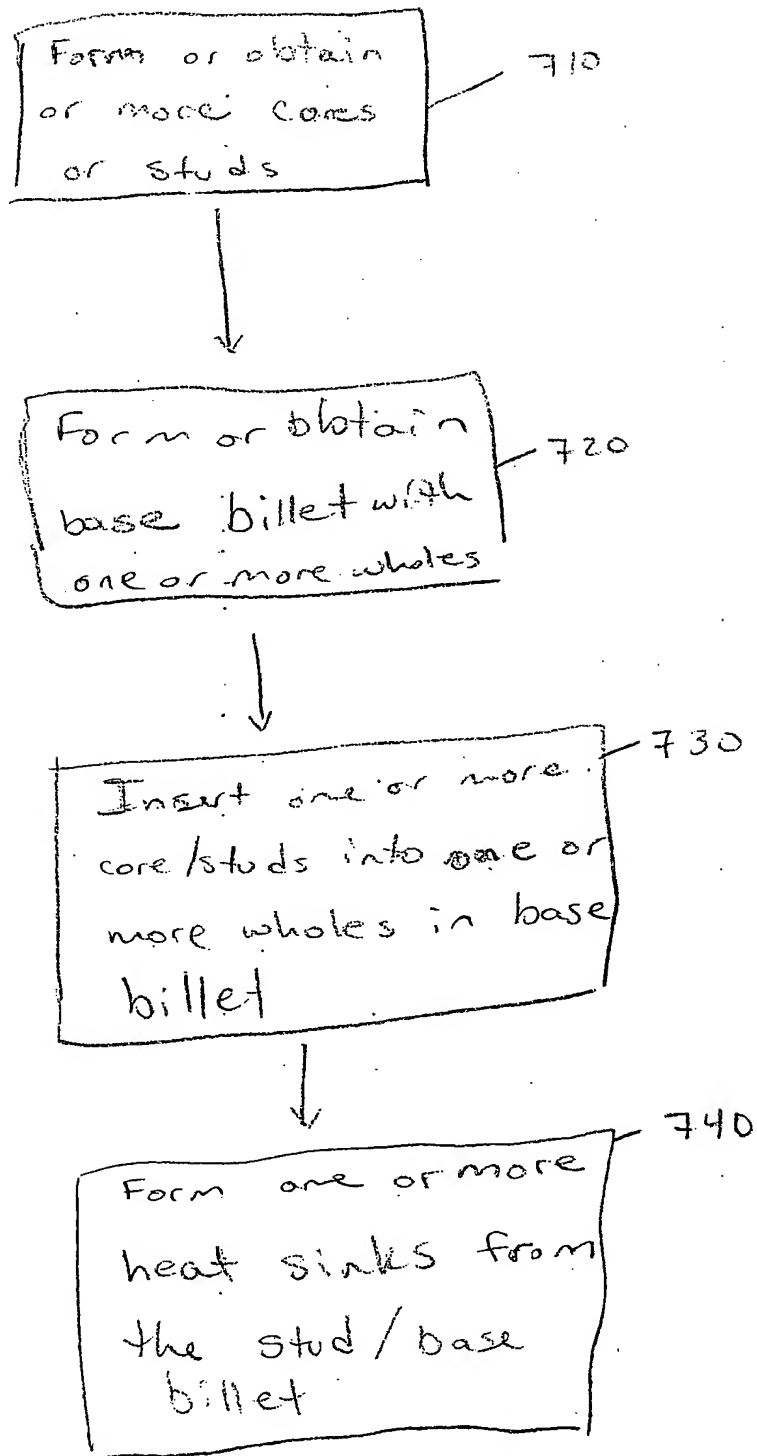 Form or obtain
or more cores
or studs
710
Form or obtain
base billet with
one or more wholes
720
Insert one or more
core/studs into one or
more wholes in base
billet
730
Form one or more
heat sinks from
the stud/base
billet
740